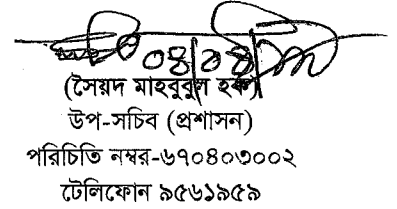 ০৪/০৪/
(সৈয়দ মাহবুবুল হক)
উপ-সচিব (প্রশাসন)
পরিচিতি নম্বর-৬৭০৪০৩০০২
টেলিফোন ৯৫৬১৯৫৯